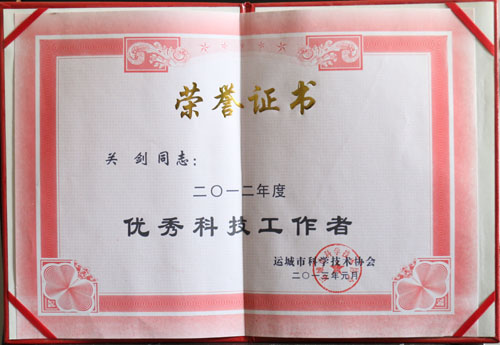 荣誉证书
关 剑同志：
二〇一二年度
优秀科技工作者
运城市科学技术协会
二〇一三年元月